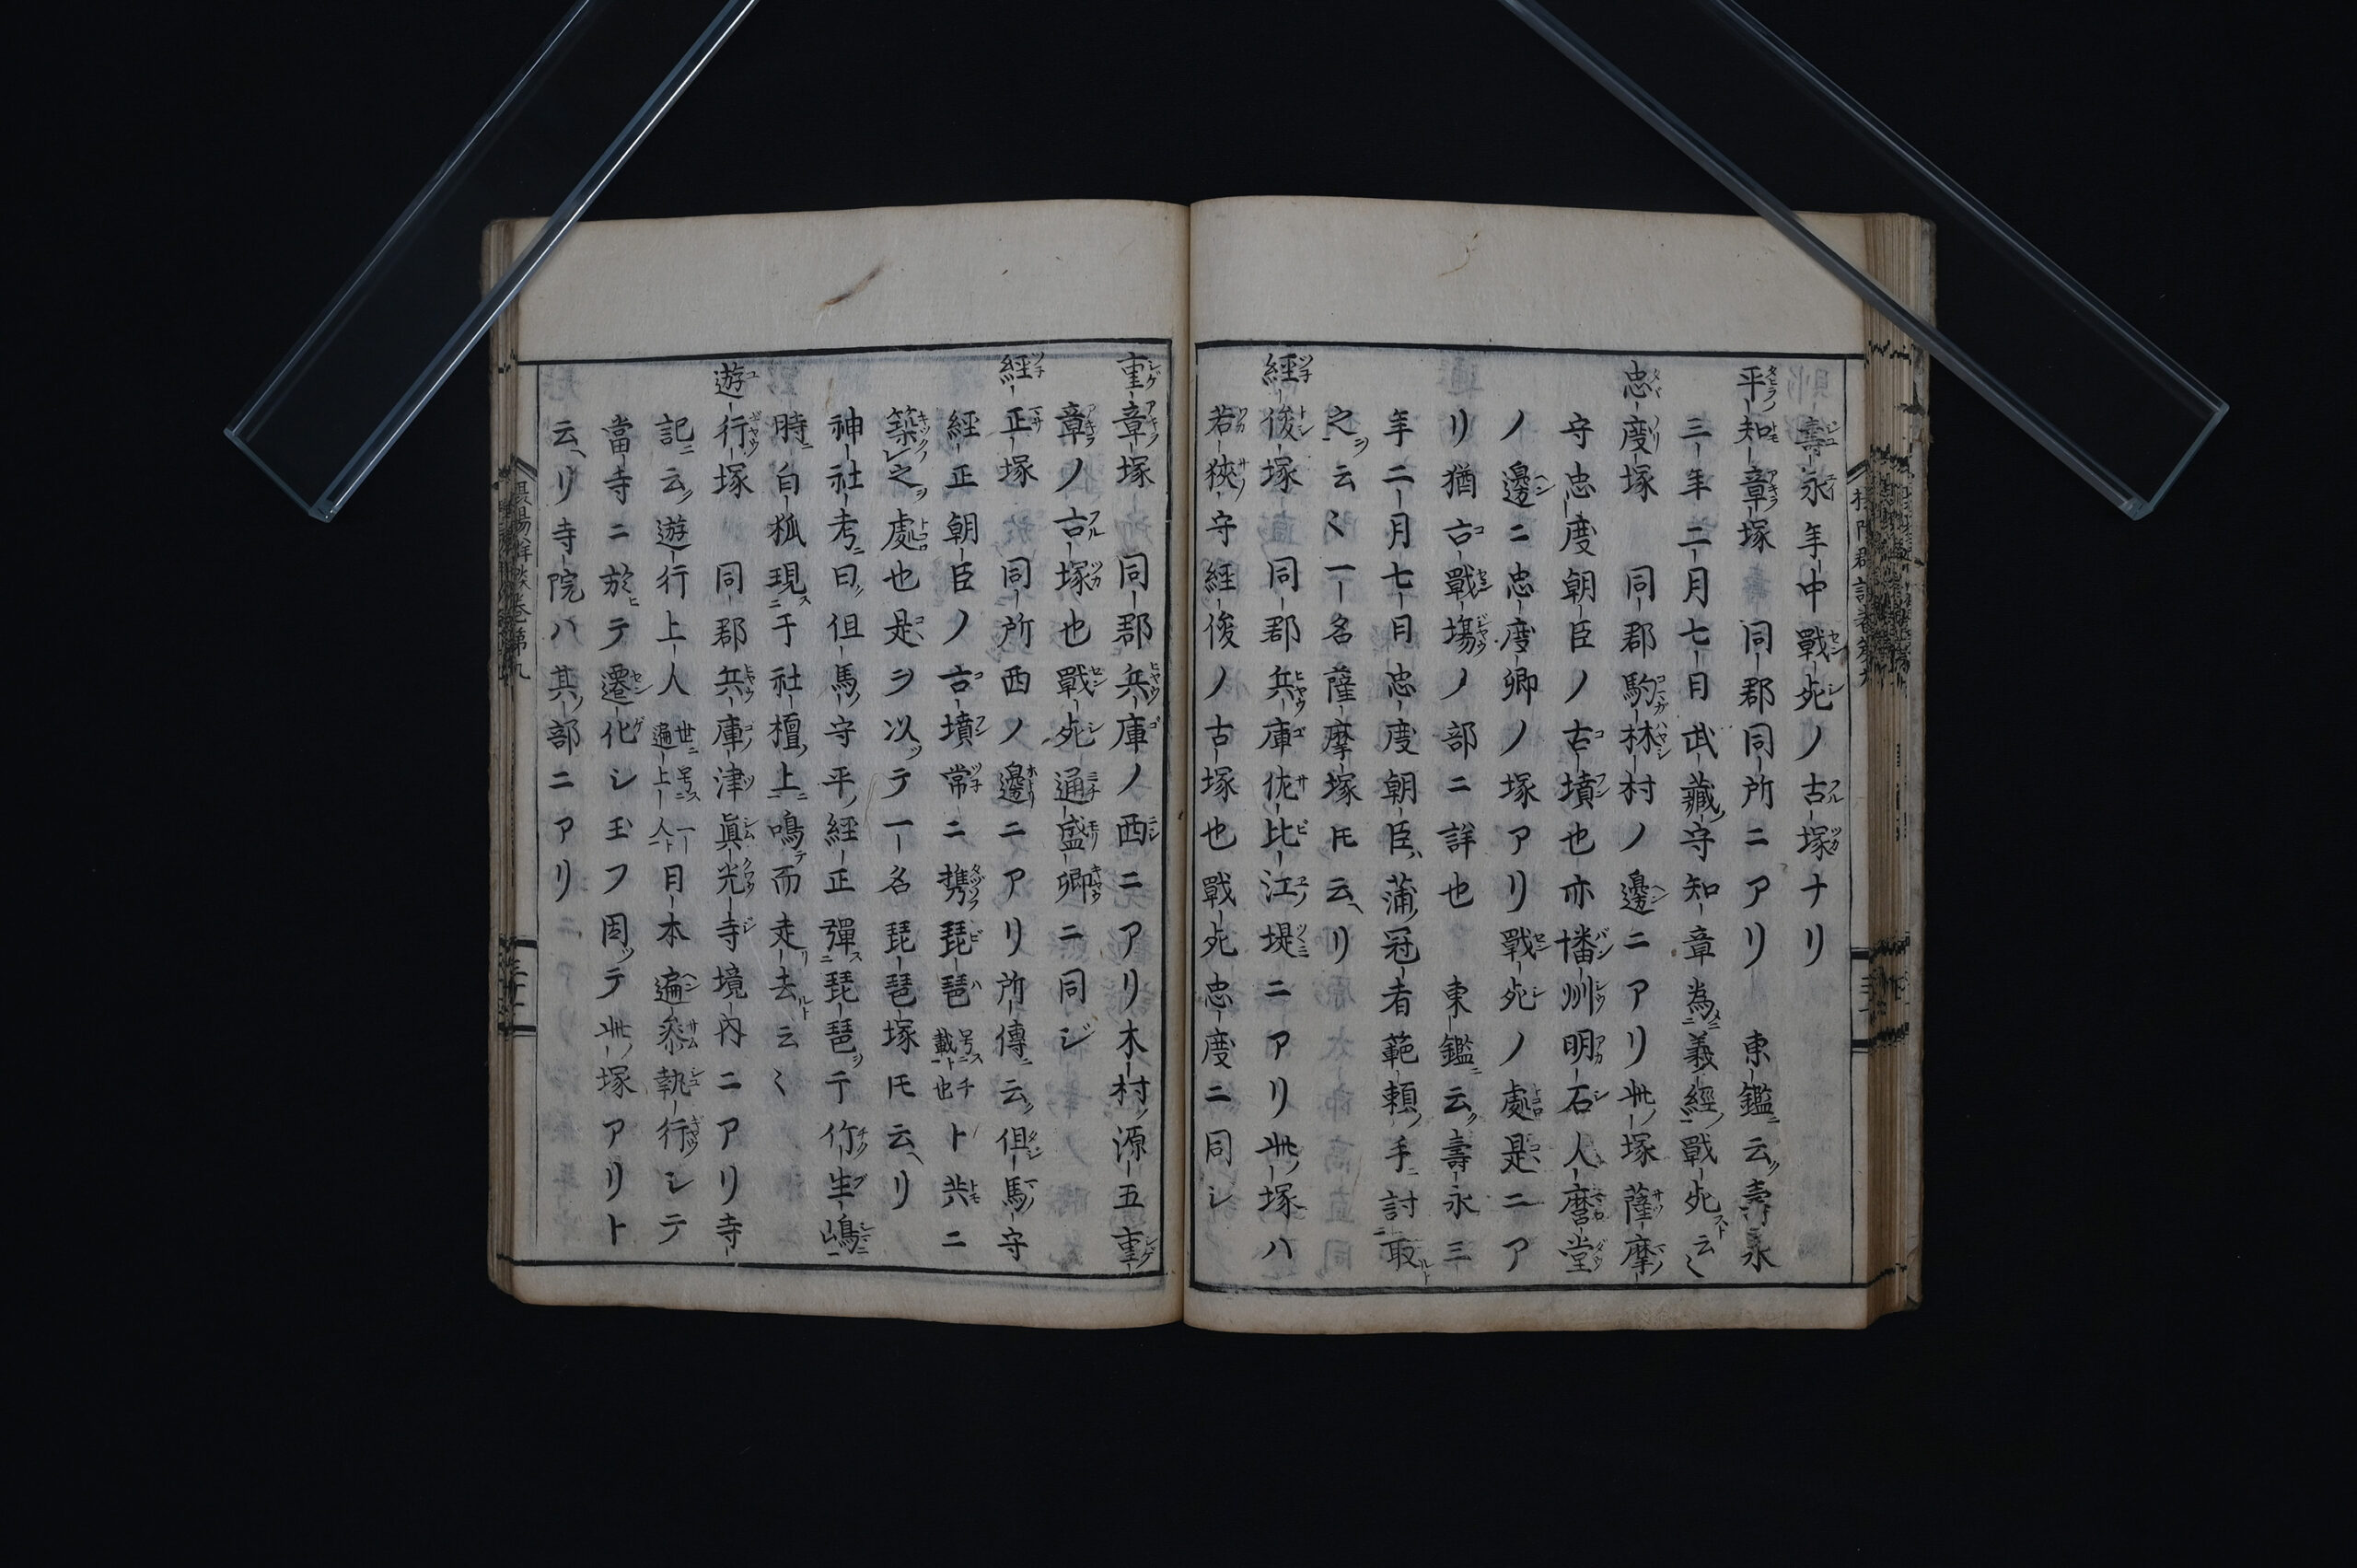 壽永年中戰死ノ古塚ナリ
平知章塚 同郡同所ニアリ 東鑑云壽永
三年二月七日武藏守知章為義經戰死云〱
忠度塚 同郡駒林村ノ邊ニアリ此塚薩摩
守忠度朝臣ノ古墳也亦播州明石人麿堂
ノ邊ニ忠度卿ノ塚アリ戰死ノ處是ニア
リ猶古戰場ノ部ニ詳也 東鑑云壽永三
年二月七日忠度朝臣蒲冠者範頼手討取
之云〱一名薩摩塚トモ云リ
經俊塚 同郡兵庫佐比江堤ニアリ此塚ハ
若狹守經俊ノ古塚也戰死忠度ニ同シ
重章塚 同郡兵庫ノ西ニアリ木村源五重
章ノ古塚也戰死通盛卿ニ同ジ
經正塚 同所西ノ邊ニアリ所傳云但馬守
經正朝臣ノ古墳常ニ携琵琶号ス青山ト共ニ
築之處也是ヲ以テ一名琵琶塚トモ云リ
神社考曰但馬守平經正彈琵琶于竹生嶋
時白狐現于社檀上鳴而走去云〱
遊行塚 同郡兵庫津眞光寺境内ニアリ寺
記云遊行上人世ニ号ス一遍上人ト日本遍叅執行シテ
當寺ニ於テ遷化シ玉フ因テ此塚アリト
云リ寺院ハ其部ニアリ